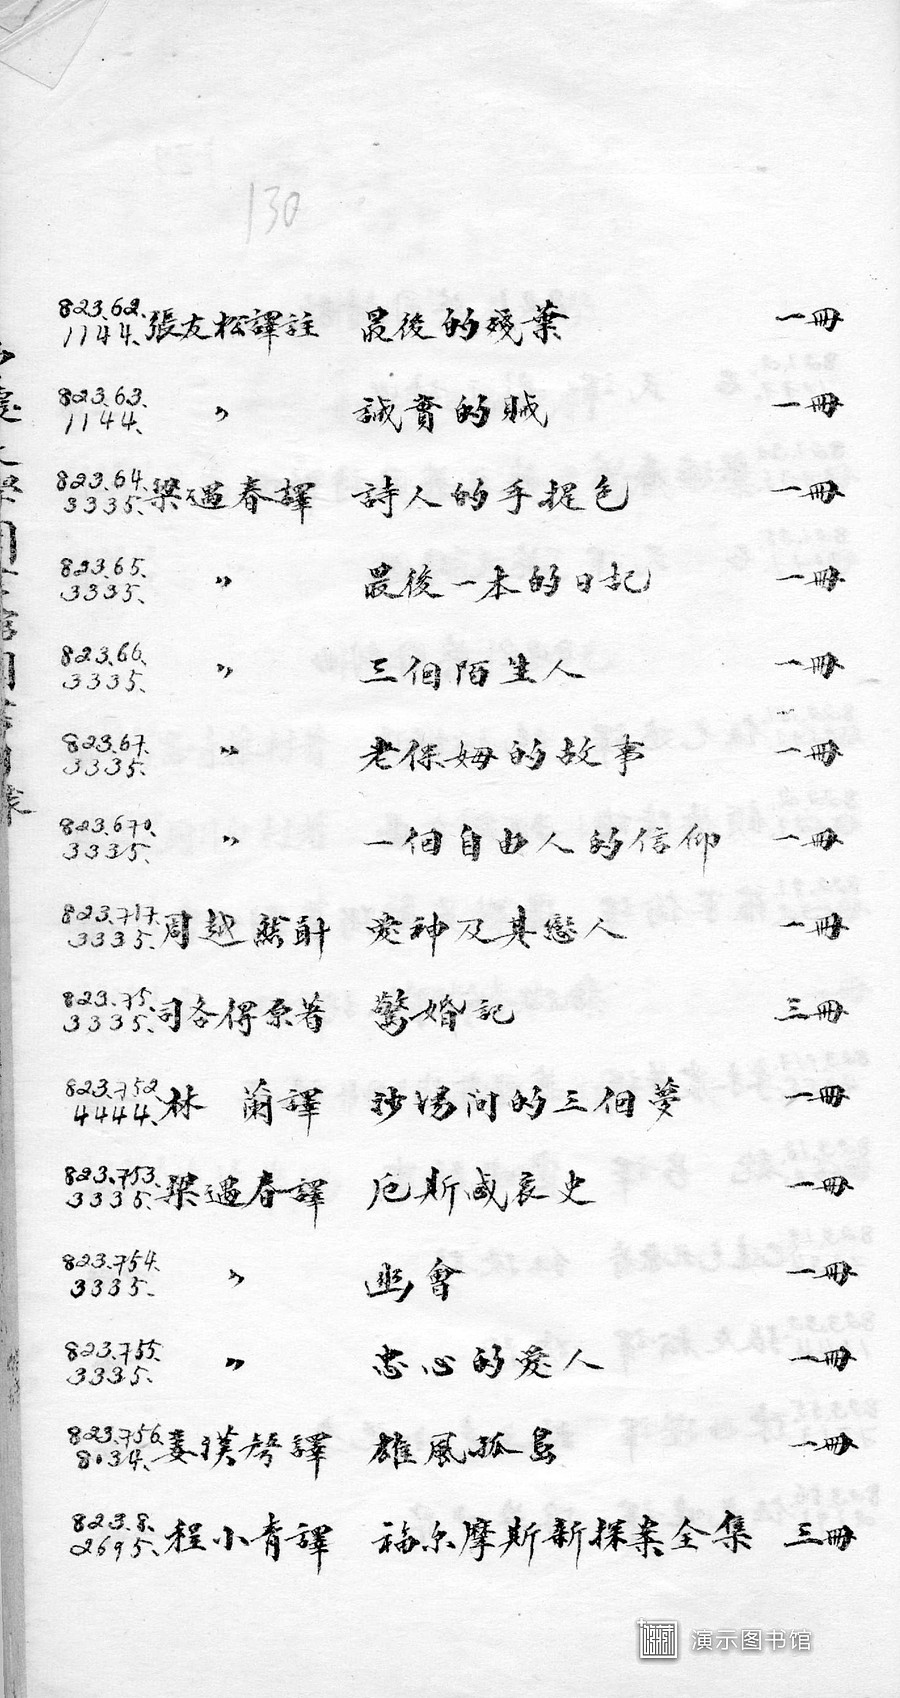 130
823.62. 1144. 張友松譯註 最後的殘葉 一冊
823.63. 1144. 〃 誠實的賊 一冊
823.64. 3335. 梁遇春譯 詩人的手提包 一冊
823.65. 3335. 〃 最後一本的日記 一冊
823.66. 3335. 〃 三個陌生人 一冊
823.67. 3335. 〃 老保姆的故事 一冊
823.670. 3335. 〃 一個自由人的信仰 一冊
823.717. 3335. 周越然 愛神及其戀人 一冊
823.75. 3335. 司各得原著 驚婚記 三冊
823.752 4444. 林 蘭譯 沙場間的三個夢 一冊
823.753. 3335. 梁遇春譯 厄斯威哀史 一冊
823.754. 3335. 〃 幽會 一冊
823.755. 3335. 〃 忠心的愛人 一冊
823.756. 8034. 姜漢琴譯 雄風孤島 一冊
823.8. 2695. 程小青譯 福尔摩斯新探案全集 三冊
演示图书馆